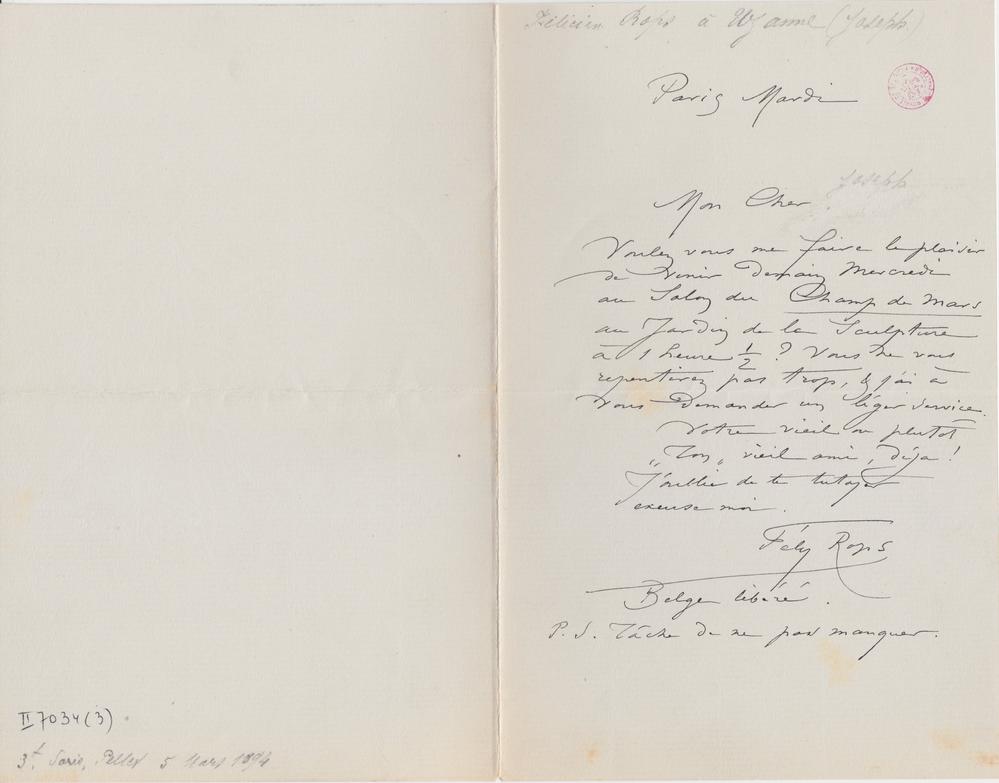 II 7034 (3)
3t Serie, Pellet 5 Mars 1894
Félicien Rops à Uzanne (Joseph)
Paris Mardi
Joseph
Mon Cher
Voulez vous me faire le plaisir
de venir Demain Mercredi
au Salon du Champ de Mars
au Jardin de la Sculpture
à 1 heure ½ ? Vous ne vous
repentirez pas trop, & j'ai à
vous demander un léger service.
Votre vieil ou plutôt
„Ton„ vieil ami, déja !
J'oublie de te tutoyer
excuse moi.
Fély Rops
Belge libéré.
P. S. Tâche de ne pas manquer.